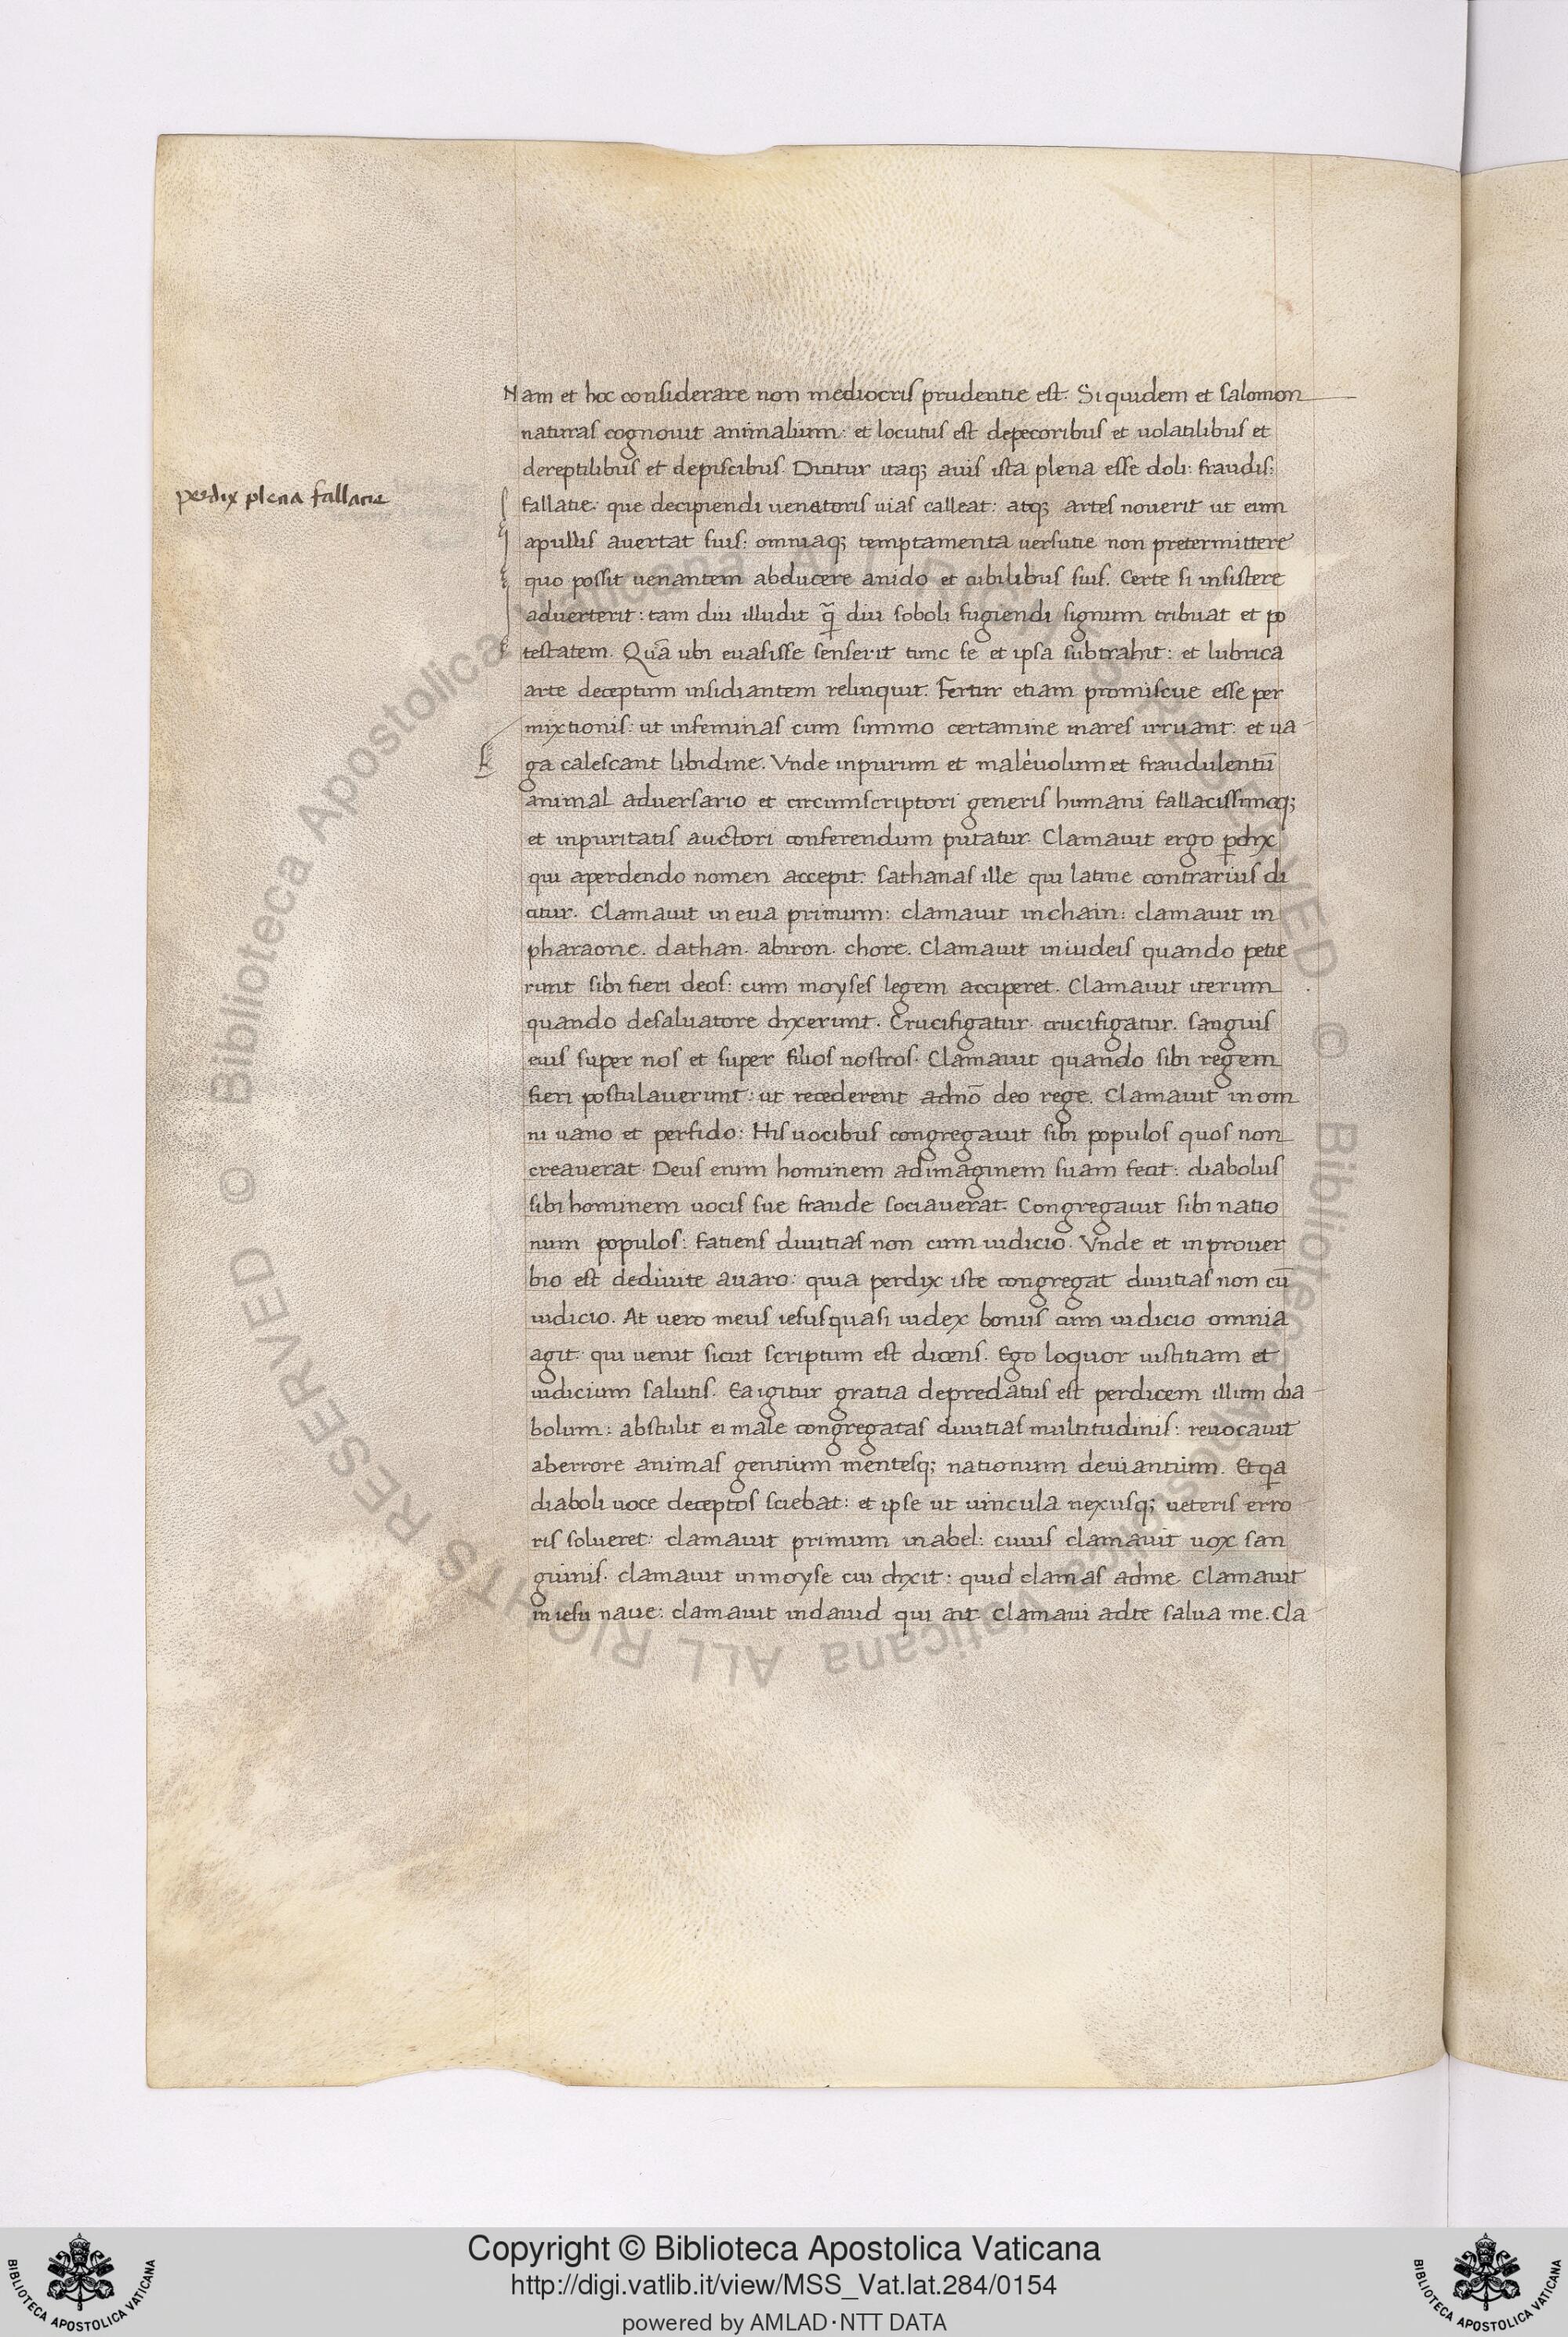 Nam et hoc considerare non mediocris prudentie est. Si quidem et salomon
naturas cognovit animalium: et locutus est depecoribus et volatilibus et
dereptilibus et depiscibus. Dicitur itaq; avis ista plena esse doli: fraudis:
perdix plena fallatie
fallatie: que decipiendi venatoris vias calleat: atq; artes noverit ut eum
apullis avertat suis: omniaq; temptamenta versutie non pretermittere
quo possit venantem abducere anido et cubilibus suis. Certe si insistere
adverterit: tam diu illudit q̃ diu soboli fugiendi signum tribuat et po
testatem. Quã ubi evasisse senserit tunc se et ipsa subtrahit: et lubrica
arte deceptum insidiantem relinquit. Fertur etiam promiscue esse per
mixtionis: ut infeminas cum summo certamine mares irruant: et va
ga calescant libidine. Vnde inpurum et malevolum et fraudulentũ
animal adversario et circumscriptori generis humani fallacissimoq;
et inpuritatis auctori conferendum putatur. Clamavit ergo ꝑdix
qui aperdendo nomen accepit. sathanas ille qui latine contrarius di
citur. Clamavit in eva primum: clamavit inchain: clamavit in
pharaone. dathan. abiron. chore. Clamavit iniudeis quando petie
runt sibi fieri deos: cum moyses legem acciperet. Clamavit iterum
quando desalvatore dixerunt. Crucifigatur. crucifigatur. sanguis
eius super nos et super filios nostros. Clamavit quando sibi regem
fieri postulaverunt: ut recederent adnõ deo rege. Clamavit in om
ni vano et perfido: His vocibus congregavit sibi populos quos non
creaverat. Deus enim hominem adimaginem suam fecit: diabolus
sibi hominem vocis sue fraude sociaverat. Congregavit sibi natio
num populos: fatiens divitias non cum iudicio. Vnde et in prover
bio est dedivite avaro: quia perdix iste congregat divitias non cũ
iudicio. At vero meus iesus quasi iudex bonus cum iudicio omnia
agit: qui venit sicut scriptum est dicens. Ego loquor iustitiam et
iudicium salutis. Ea igitur gratia depredatus est perdicem illum dia
bolum: abstulit ei male congregatas divitias multitudinis: revocavit
aberrore animas gentium mentesq; nationum deviantium. Et qa
diaboli voce deceptos sciebat: et ipse ut vincula nexusq; veteris erro
ris solveret: clamavit primum inabel: cuius clamavit vox san
guinis. clamavit in moyse cui dixit: quid clamas adme. Clamavit
in iesu nave: clamavit indavid qui ait Clamavi adte salva me. Cla
© Biblioteca Apostolica Vaticana ALL RIGHTS RESERVED © Biblioteca Apostolica Vaticana ALL RIGHTS RESERVED
Copyright © Biblioteca Apostolica Vaticana
http://digi.vatlib.it/view/MSS_Vat.lat.284/0154
powered by AMLAD·NTT DATA
BIBLIOTECA APOSTOLICA VATICANA
BIBLIOTECA APOSTOLICA VATICANA